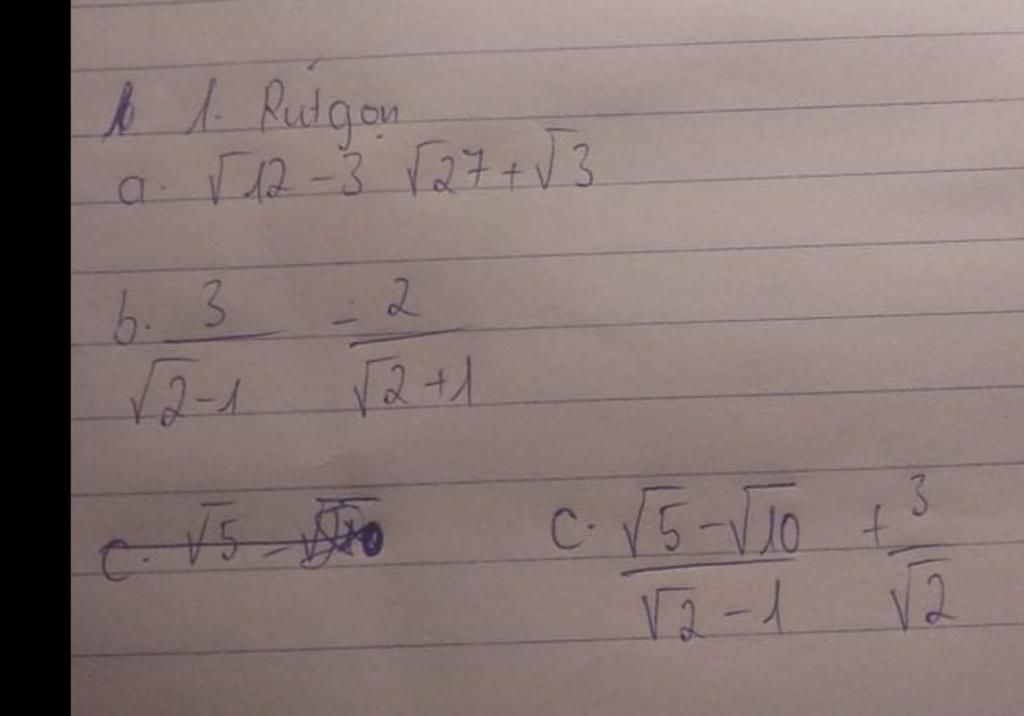 1. Rút gọn
a. √12 - 3 √27 + √3
b. 3/(√2 - 1) - 2/(√2 + 1)
c. √5 -
c. (√5 - √10)/(√2 - 1) + 3/√2